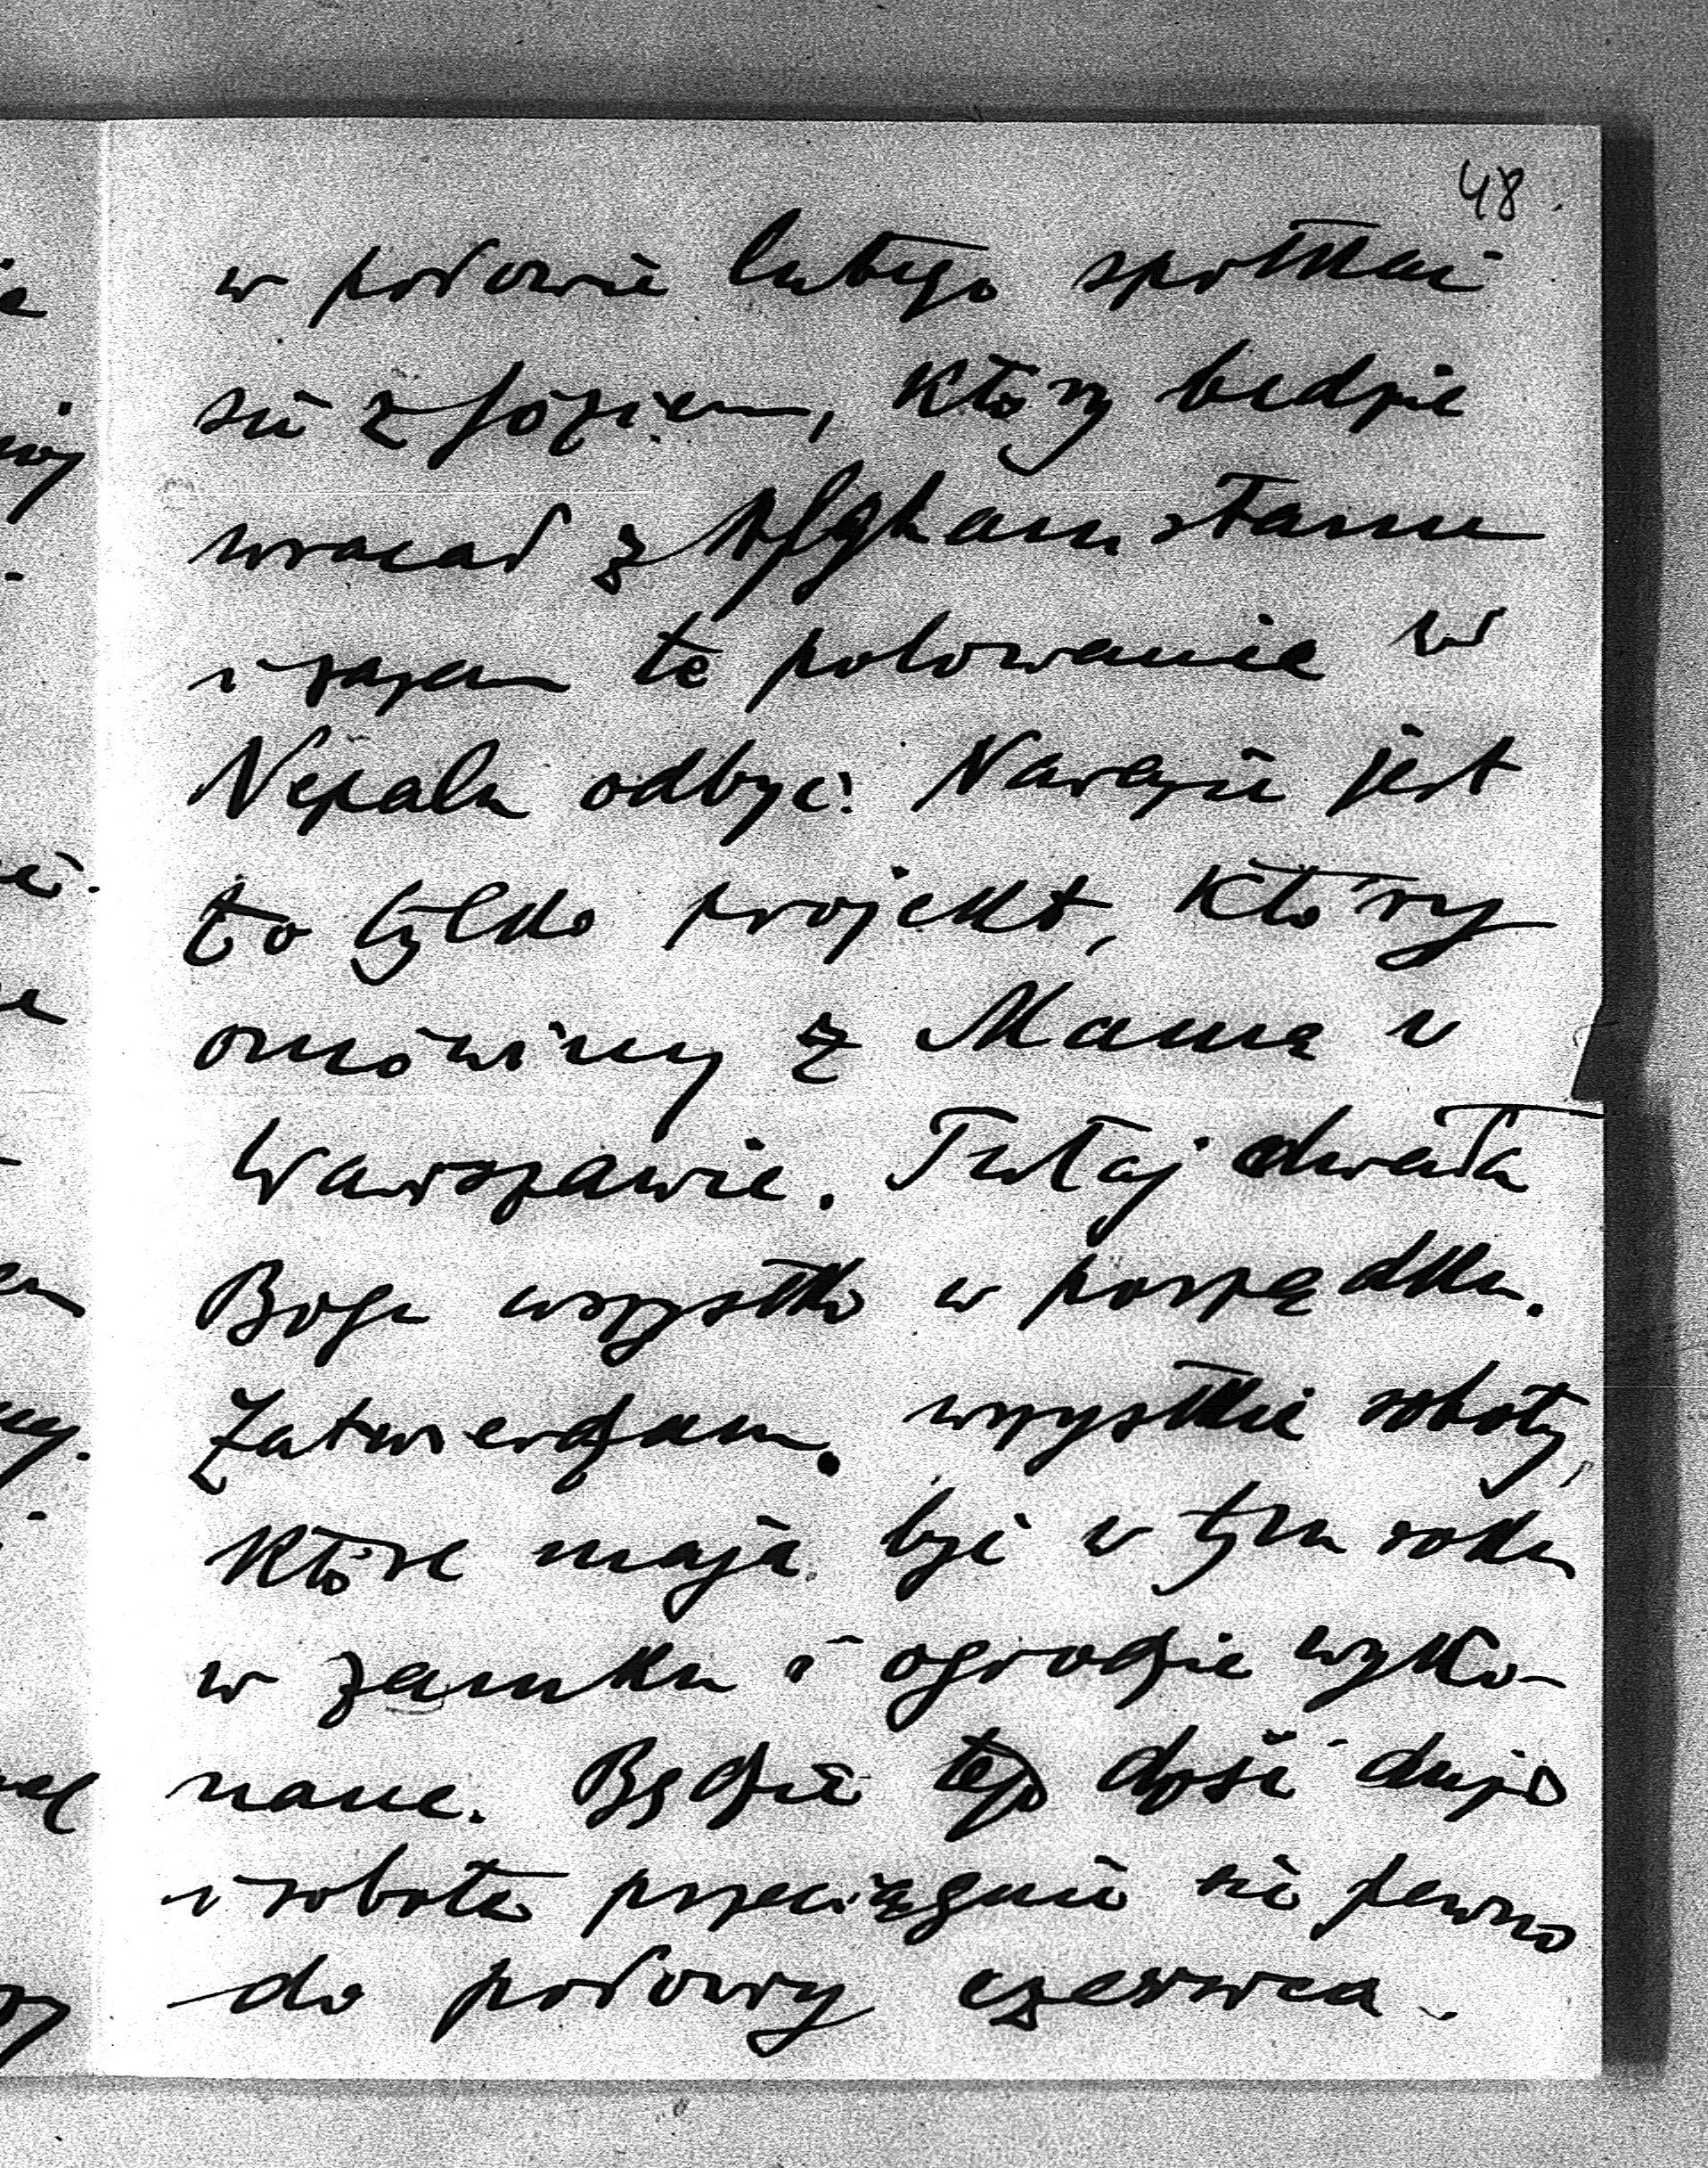 48.
w połowie lutego spotkać
się z Józiem, który będzie
wracał z Afghanistanu
i razem te polowanie w
Nepalu odbyć. Narazie jest
to tylko projekt, który
omówimy z Mamą w
Warszawie. Tutaj chwała
Bogu wszystko w porządku.
Zatwierdzam wszystkie roboty,
które mają być w tym roku
w zamku i ogrodzie wyko-
nane. Będzie tego dość dużo
i robota przeciągnie się pewno
do połowy czerwca.